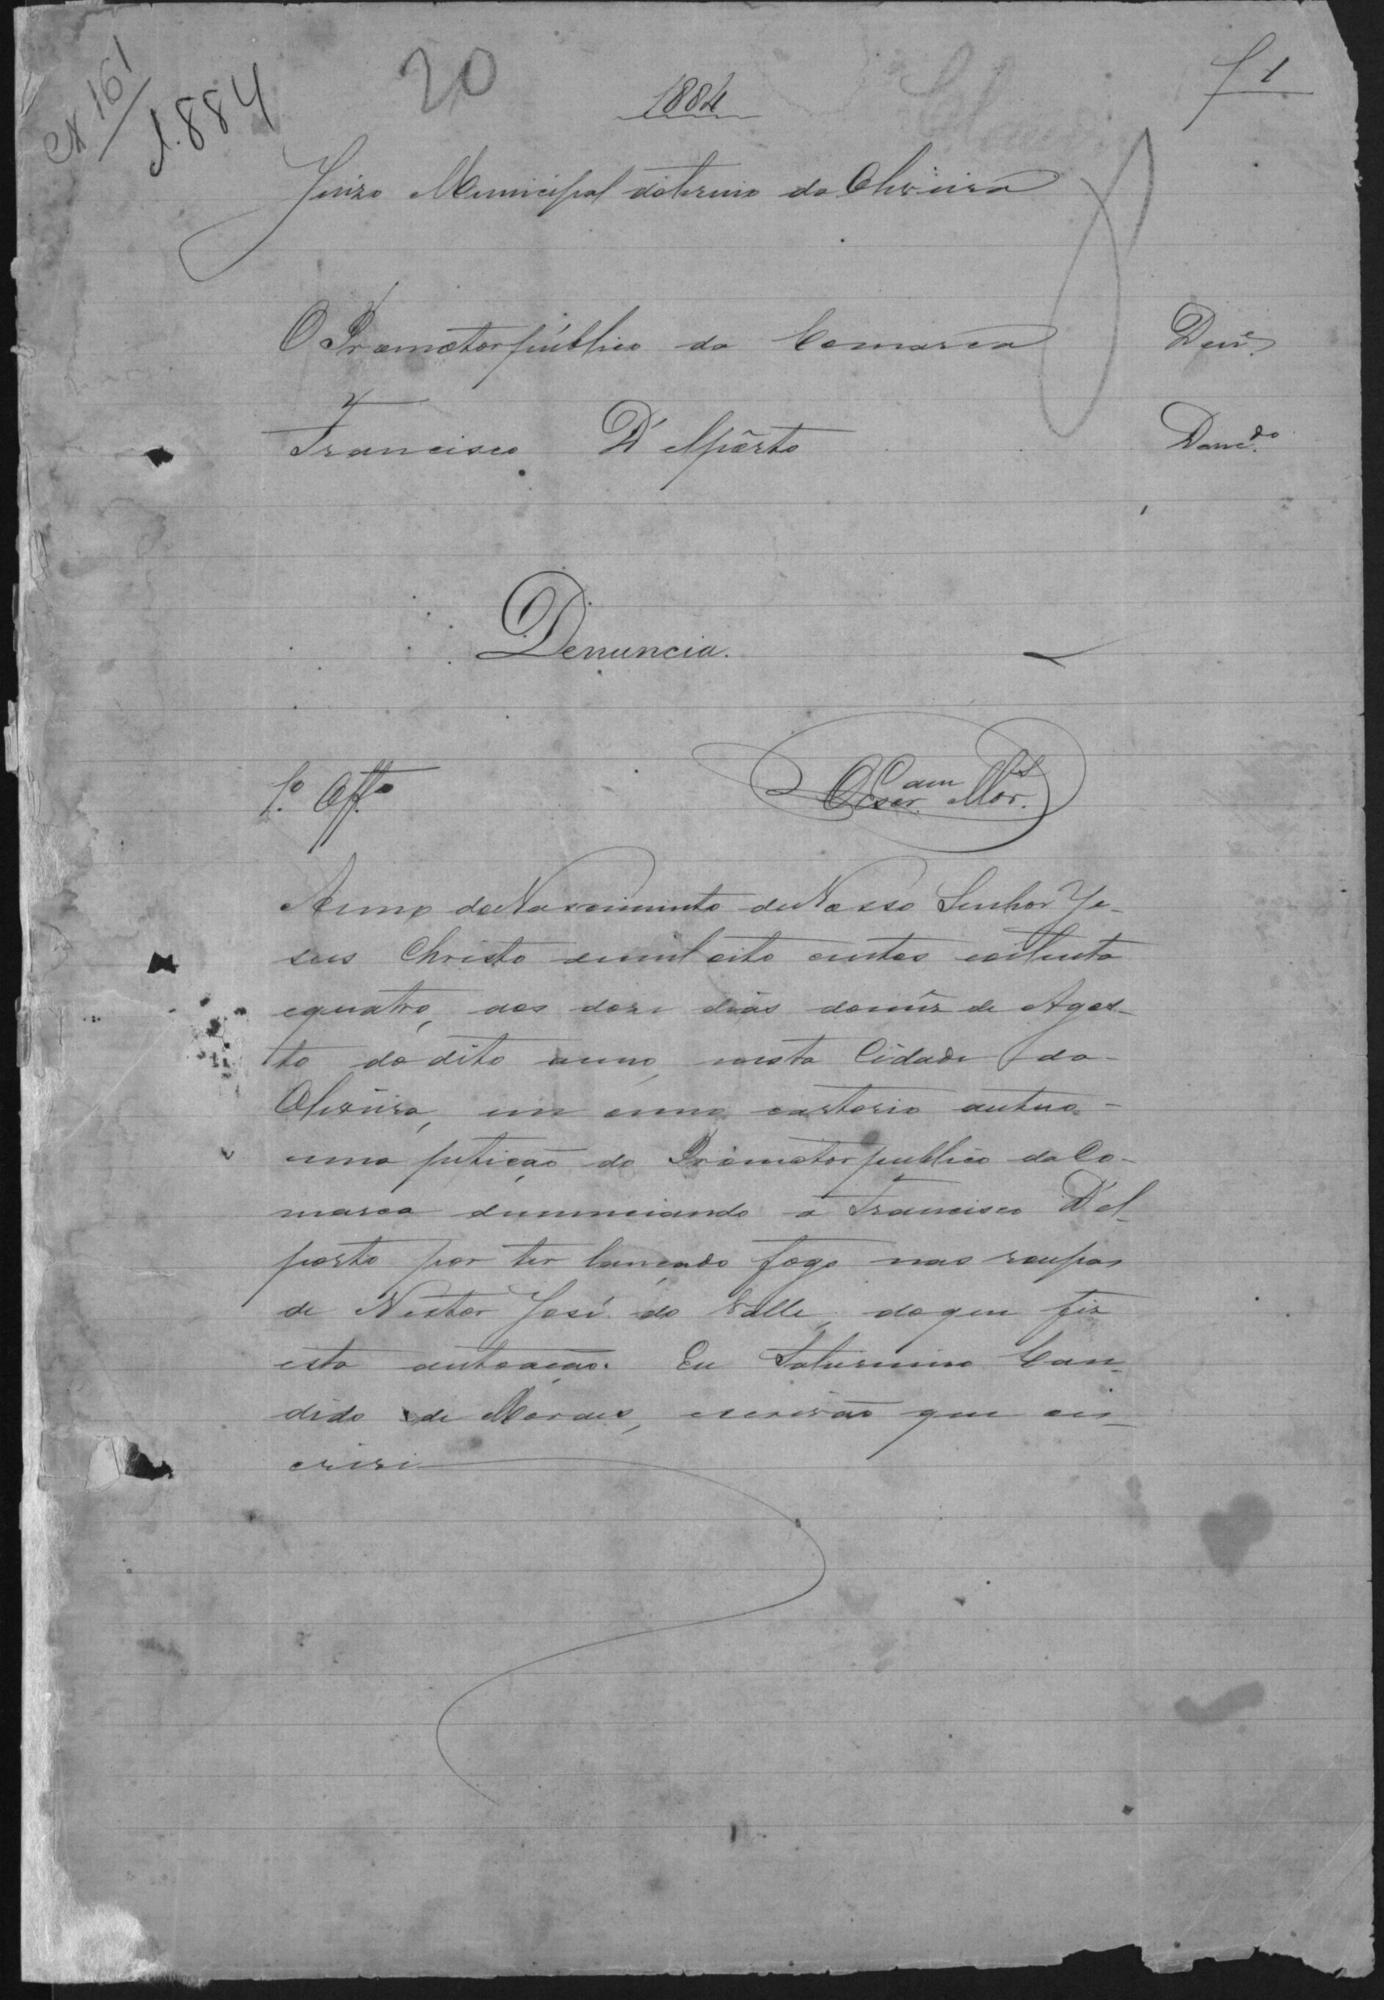 N 161
1.884
20
1884
f 1
Juizo Municipal do termo da Oliveira
O Promotor publico da Comarca Den.e
Francisco D'elpórto Denc.do
Denuncia.
1.º Off.º
O Escr. Mor.
Anno do Nascimento de Nosso Senhor Je-
sus Christo de mil oito centos e oitenta
e quatro, aos doze dias do mez de Agos-
to do dito anno, nesta Cidade da
Oliveira, em meu cartorio autuo
uma petição do Promotor publico da Co-
marca denunciando a Francisco D'el-
porto por ter lançado fogo nas roupas
de Nestor José do Valle, do que fiz
esta autoação. Eu Saturnino Can-
dido de Moraes, escrivão que es-
crivi